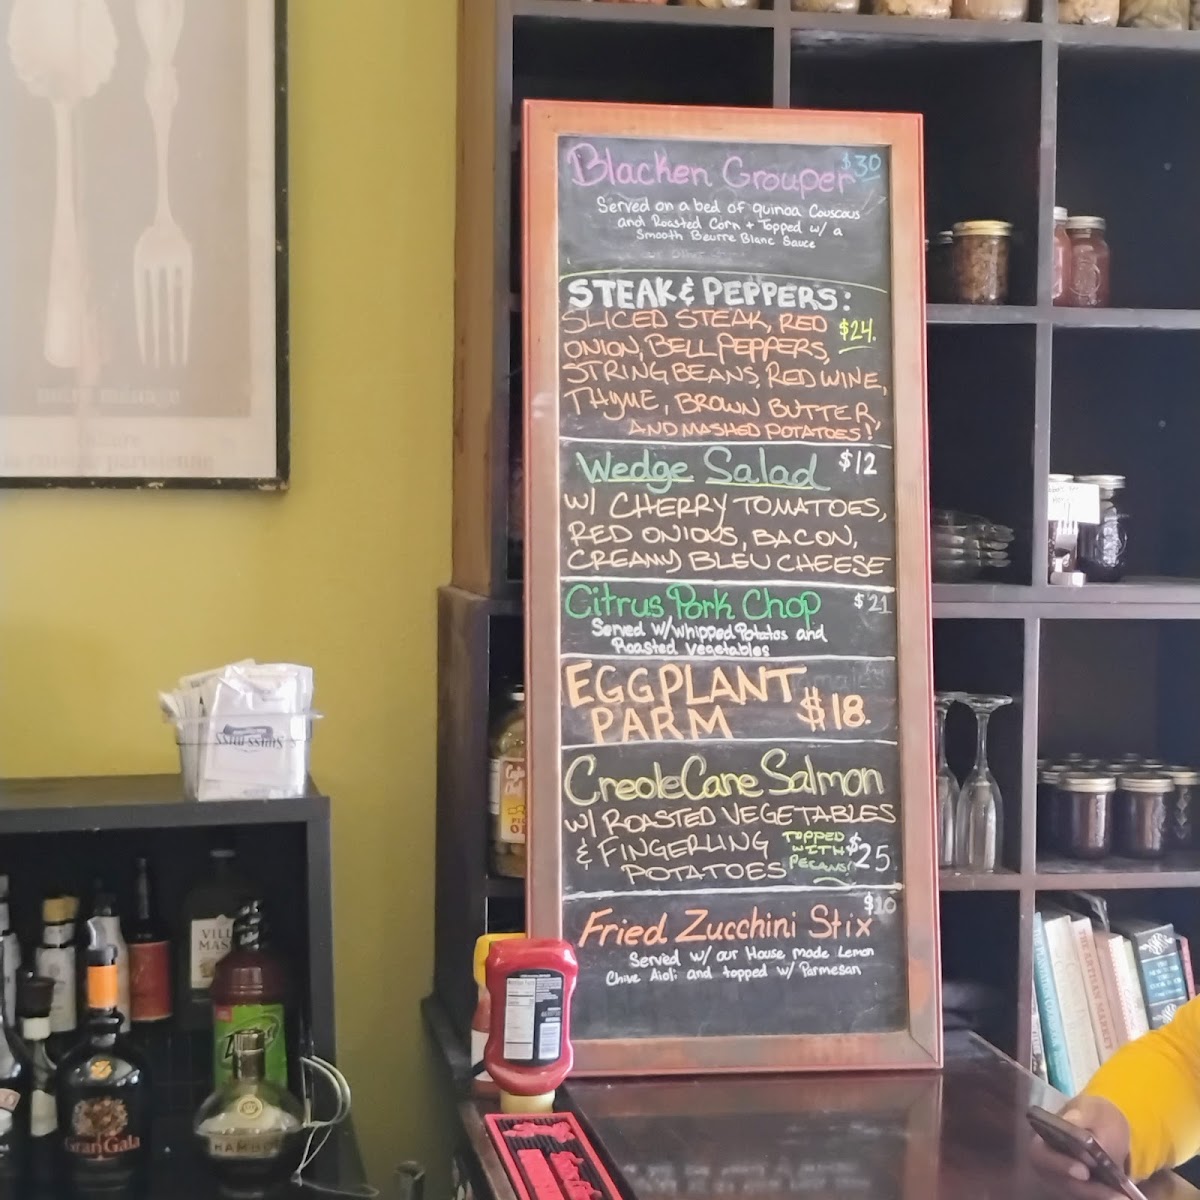 Blacken Grouper $30
Served on a bed of quinoa Couscous
and Roasted Corn + Topped w/ a
Smooth Beurre Blanc Sauce
STEAK & PEPPERS:
SLICED STEAK, RED $24.
ONION, BELL PEPPERS,
STRING BEANS, RED WINE,
THYME, BROWN BUTTER,
AND MASHED POTATOES!
Wedge Salad $12
W/ CHERRY TOMATOES,
RED ONIONS, BACON,
CREAMY BLEU CHEESE
Citrus Pork Chop $21
Served w/whipped Potatos and
Roasted vegetables
EGGPLANT
PARM $18.
Creole Cane Salmon
W/ ROASTED VEGETABLES
& FINGERLING
POTATOES
TOPPED
WITH
PECANS!
$25
$10
Fried Zucchini Stix
Served w/ our House made Lemon
Chive Aioli and topped w/ Parmesan
SWISS MISS
VILL
MASS
Gran Gala
HAMBO
THE ARTISAN MARKET